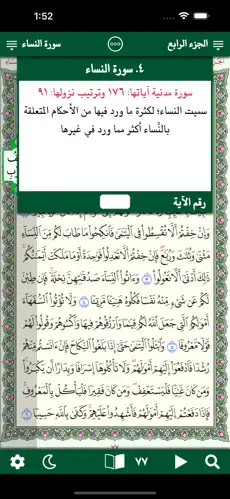 1:52
الجزء الرابع
سورة النساء
٤. سورة النساء
سورة مدنية آياتها: ١٧٦ وترتيب نزولها: ٩١
سميت النساء؛ لكثرة ما ورد فيها من الأحكام المتعلقة
بالنِّساء أكثر مما ورد في غيرها
رقم الآية
وَإِنْ خِفْتُمْ أَلَّا تُقْسِطُوا۟ فِى ٱلْيَتَـٰمَىٰ فَٱنكِحُوا۟ مَا طَابَ لَكُم مِّنَ ٱلنِّسَآءِ
مَثْنَىٰ وَثُلَـٰثَ وَرُبَـٰعَ ۖ فَإِنْ خِفْتُمْ أَلَّا تَعْدِلُوا۟ فَوَٰحِدَةً أَوْ مَا مَلَكَتْ أَيْمَـٰنُكُمْ ۚ
ذَٰلِكَ أَدْنَىٰٓ أَلَّا تَعُولُوا۟ ٣ وَءَاتُوا۟ ٱلنِّسَآءَ صَدُقَـٰتِهِنَّ نِحْلَةً ۚ فَإِن طِبْنَ
لَكُمْ عَن شَىْءٍ مِّنْهُ نَفْسًا فَكُلُوهُ هَنِيٓـًٔا مَّرِيٓـًٔا ٤ وَلَا تُؤْتُوا۟ ٱلسُّفَهَآءَ
أَمْوَٰلَكُمُ ٱلَّتِى جَعَلَ ٱللَّهُ لَكُمْ قِيَـٰمًا وَٱرْزُقُوهُمْ فِيهَا وَٱكْسُوهُمْ وَقُولُوا۟ لَهُمْ
قَوْلًا مَّعْرُوفًا ٥ وَٱبْتَلُوا۟ ٱلْيَتَـٰمَىٰ حَتَّىٰٓ إِذَا بَلَغُوا۟ ٱلنِّكَاحَ فَإِنْ ءَانَسْتُم مِّنْهُمْ
رُشْدًا فَٱدْفَعُوٓا۟ إِلَيْهِمْ أَمْوَٰلَهُمْ ۖ وَلَا تَأْكُلُوهَآ إِسْرَافًا وَبِدَارًا أَن يَكْبَرُوا۟ ۚ
وَمَن كَانَ غَنِيًّا فَلْيَسْتَعْفِفْ ۖ وَمَن كَانَ فَقِيرًا فَلْيَأْكُلْ بِٱلْمَعْرُوفِ ۚ
فَإِذَا دَفَعْتُمْ إِلَيْهِمْ أَمْوَٰلَهُمْ فَأَشْهِدُوا۟ عَلَيْهِمْ ۚ وَكَفَىٰ بِٱللَّهِ حَسِيبًا ٦
٧٧